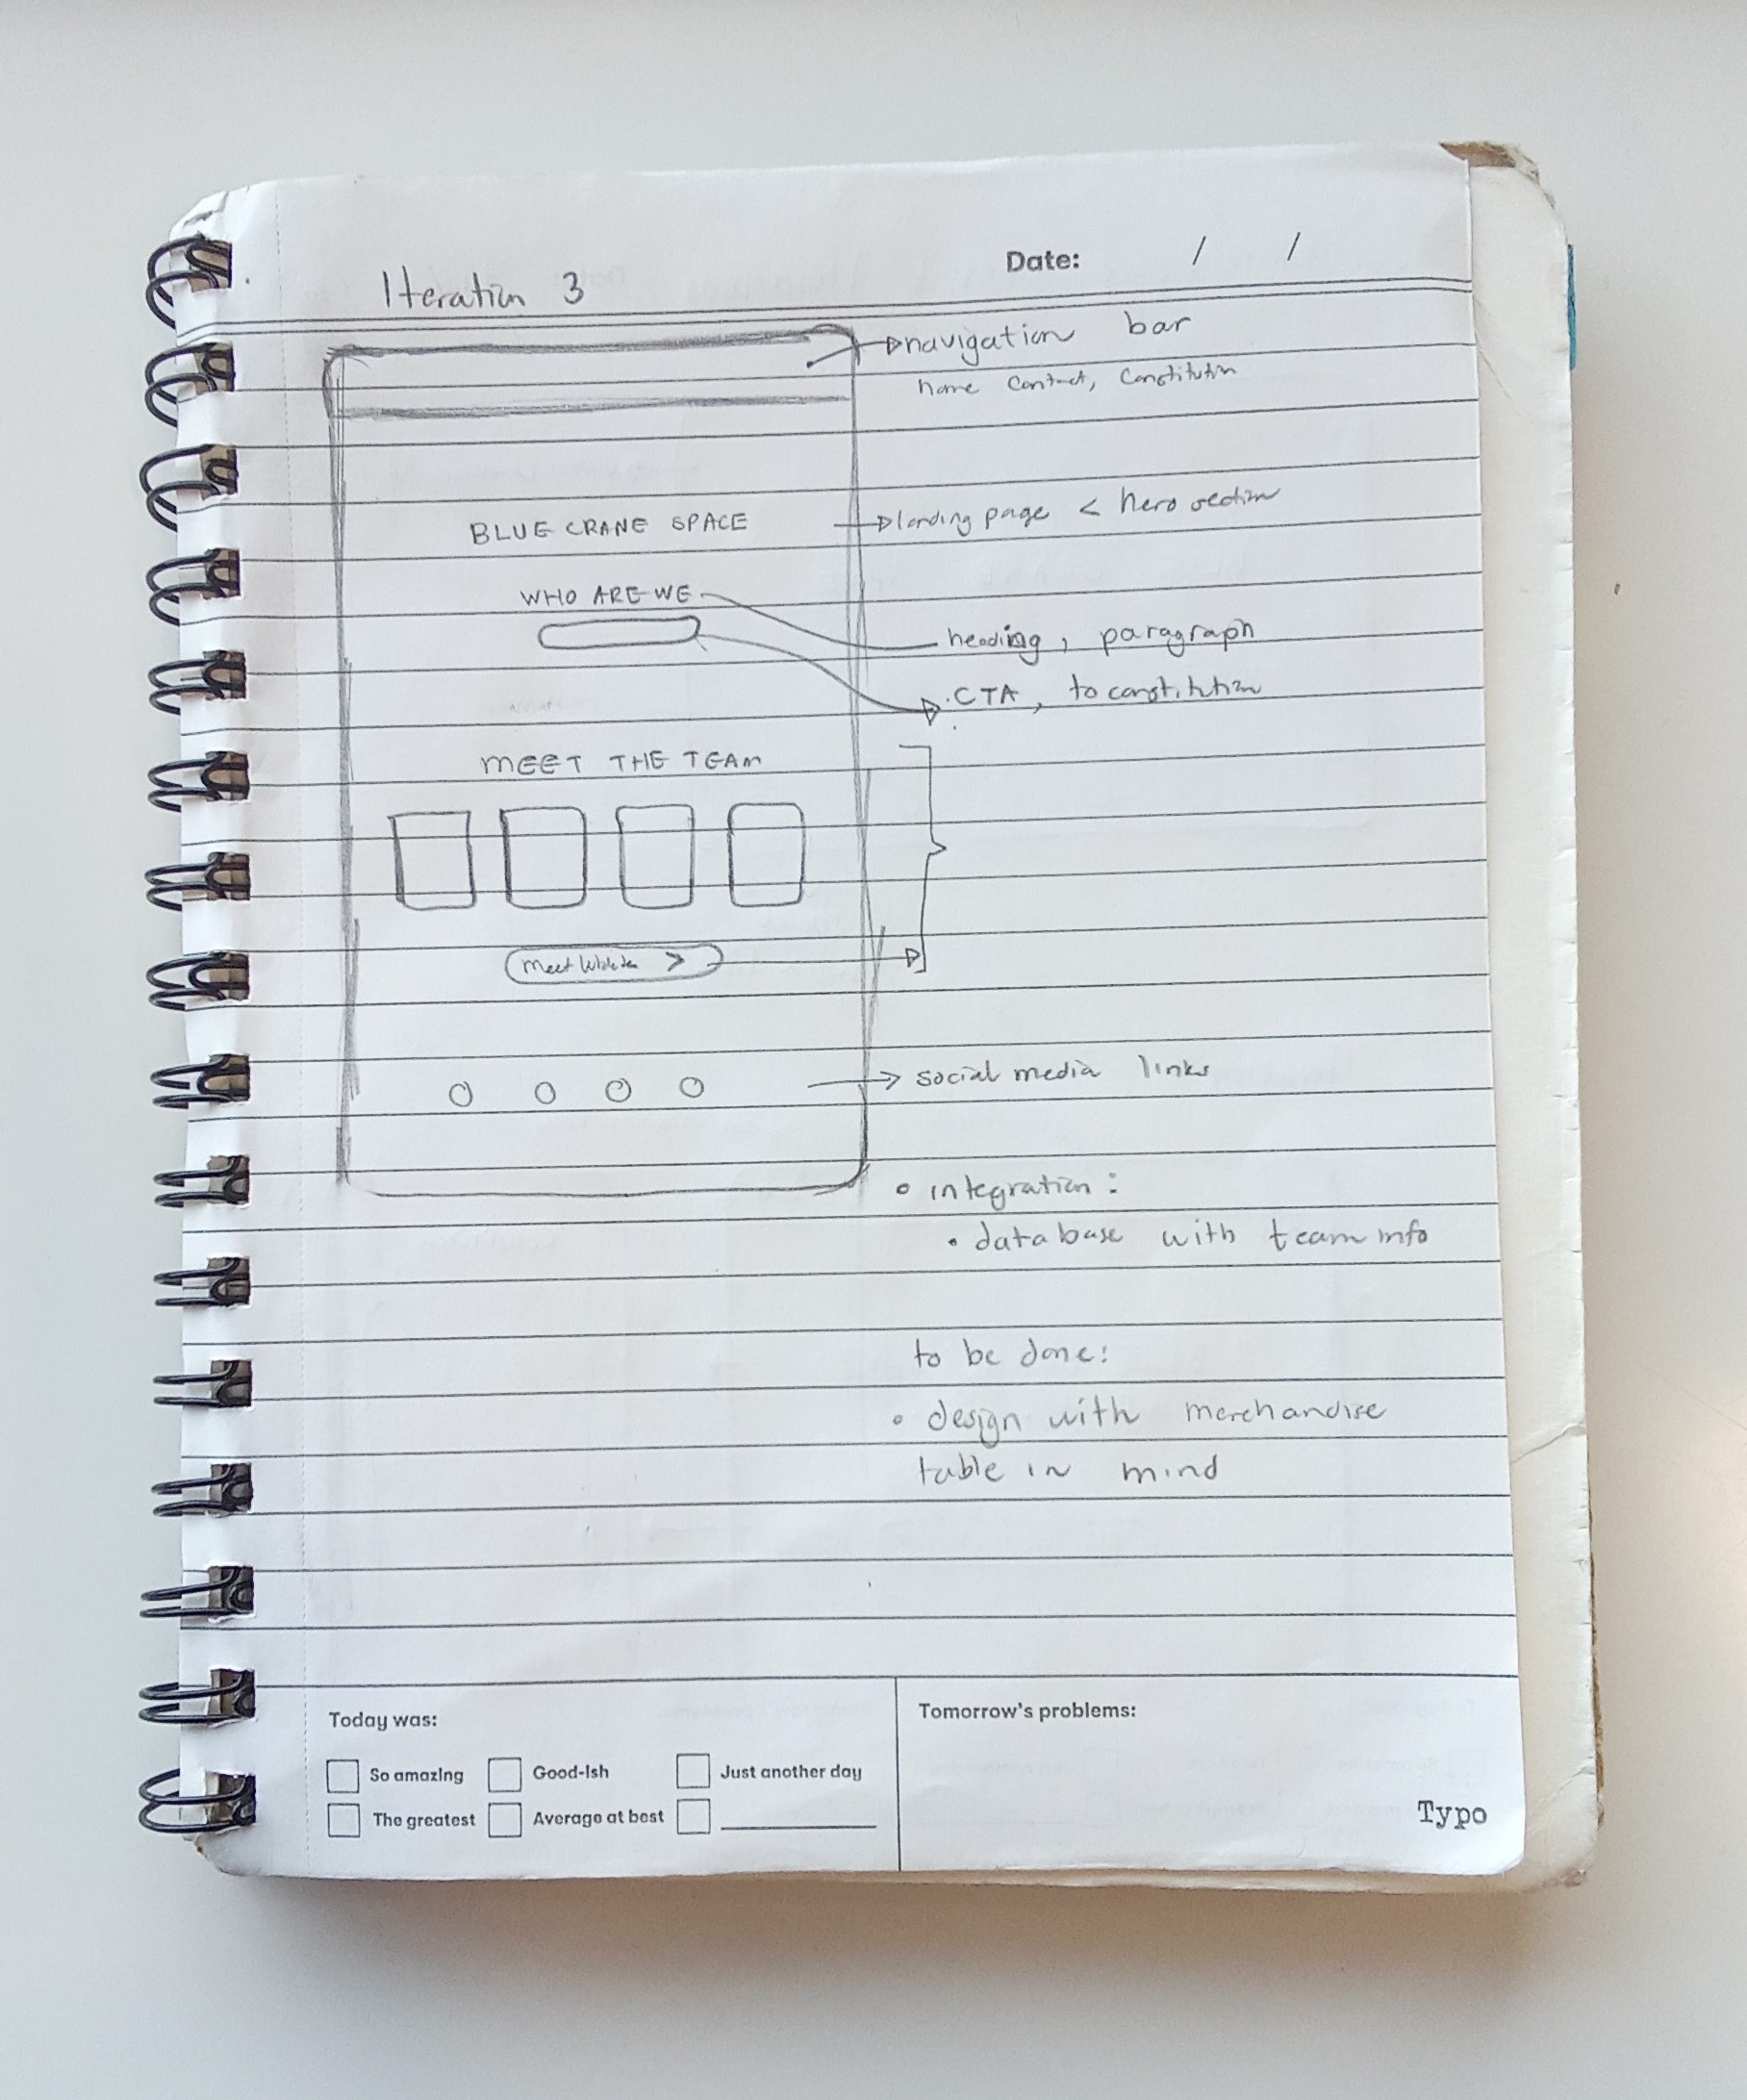 Date: / /
Iteration 3
navigation bar
home contact, constitution
BLUE CRANE SPACE
landing page < hero section
WHO ARE WE
heading, paragraph
CTA, to constitution
MEET THE TEAM
meet >
social media links
• integration:
• database with team info
to be done:
• design with merchandise
table in mind
Today was:
So amazing
Good-ish
Just another day
The greatest
Average at best
Tomorrow's problems:
Typo